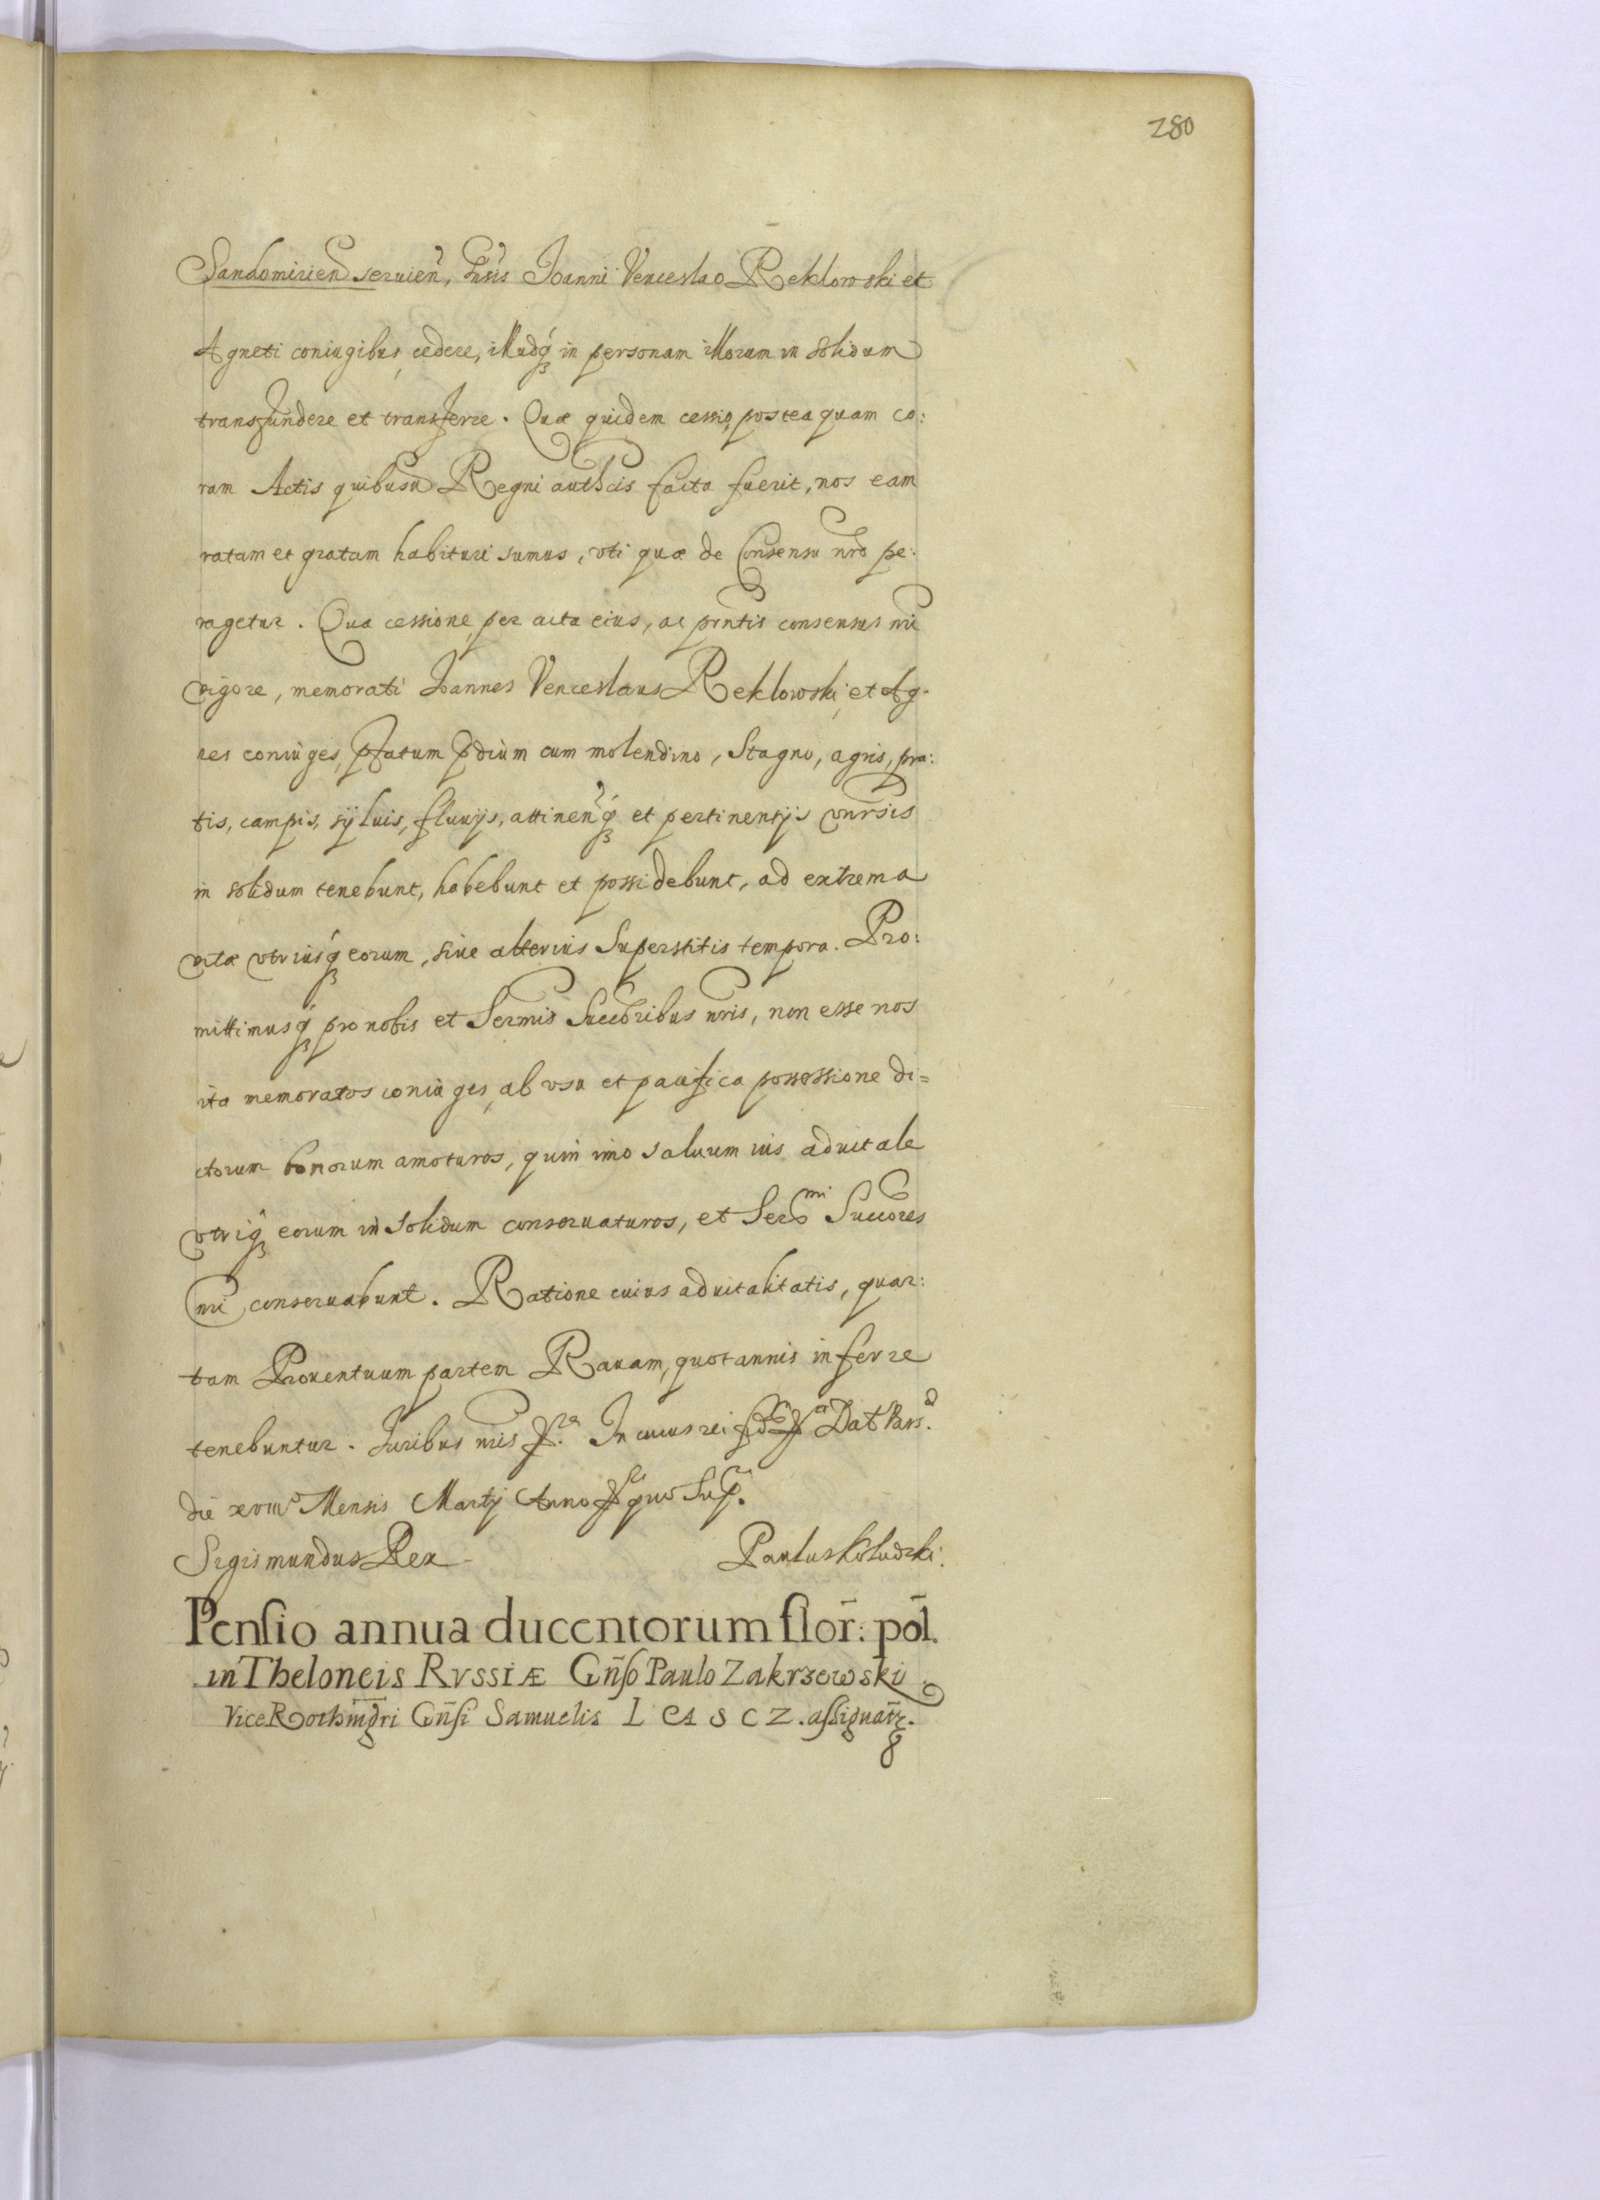 280
Sandomirien seruien, Gnsis Joanni Venceslao Reklowski et
Agneti coniugibus, cedere, illudq́ue in personam illorum in solidum
transfundere et transferre. Quæ quidem cessio, postea quam co:
ram Actis quibusu Regni authcis facta fuerit, nos eam
ratam et gratam habituri sumus, uti quæ de Consensu nro pe:
ragetur. Qua cessione per acta eius, ac pntis consensus nri
vigore, memorati Joannes Venceslaus Reklowski, et Ag-
nes coniuges, pfatum pdium cum molendino, Stagno, agris, pra:
tis, campis, syluis, fluuijs, attinenq́ et pertinentijs vnrsis
in solidum tenebunt, habebunt et possidebunt, ad extrema
vitæ vtriusq́ eorum, siue alterius Superstitis tempora. Pro:
mittimusq́ pro nobis et Sermis Succoribus nris, non esse nos
ita memoratos coniuges, ab vsu et pacifica possessione di=
ctorum bonorum amoturos, quin imo saluum ius aduitale
vtriq́ eorum in solidum conseruaturos, et Sermi Succores
nri conseruabunt. Ratione cuius aduitalitatis, quar:
tam Prouentuum partem Rauam, quotannis inferre
tenebuntur. Juribus nris In cuius rei Dat Vars.
die xviii Mensis Martij Anno quo Sup.
Sigismundus Rex Paulus Koludzki.
Pensio annua ducentorum flor: pol.
in Theloneis RVSSIÆ Gñso Paulo Zakrzowski
Vice Rothmgri Gñsi Samuelis LASCZ. assignatr.